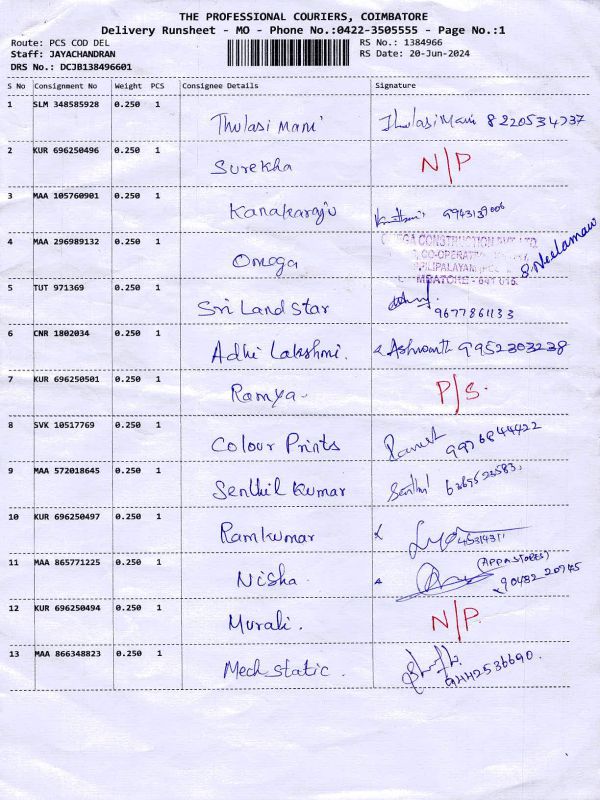 THE PROFESSIONAL COURIERS, COIMBATORE
Delivery Runsheet - MO - Phone No.:0422-3505555 - Page No.:1
Route: PCS COD DEL RS No.: 1384966
Staff: JAYACHANDRAN RS Date: 20-Jun-2024
DRS No.: DCJB138496601
S No Consignment No Weight PCS Consignee Details Signature
1 SLM 348585928 0.250 1 Thulasi Mani Thulasi Mani 8220534737
2 KUR 696250496 0.250 1 Surekha N/P
3 MAA 105760901 0.250 1 Kanakaraju
4 MAA 296989132 0.250 1 Omega
OMEGA CONSTRUCTION PVT LTD
CO-OPERATIVE
COIMBATORE - 641 015
S. Neelamani
5 TUT 971369 0.250 1 Sri Land Star 9677861133
6 CNR 1802034 0.250 1 Adhi Lakshmi. Ashwanth 9952303238
7 KUR 696250501 0.250 1 Ramya P/S.
8 SVK 10517769 0.250 1 Colour Prints 9976844422
9 MAA 572018645 0.250 1 Senthil Kumar Senthil
10 KUR 696250497 0.250 1 Ramkumar
11 MAA 865771225 0.250 1 Nisha (APPA STORES)
90482 20745
12 KUR 696250494 0.250 1 Murali. N/P.
13 MAA 866348823 0.250 1 Mech static. 9442536690.